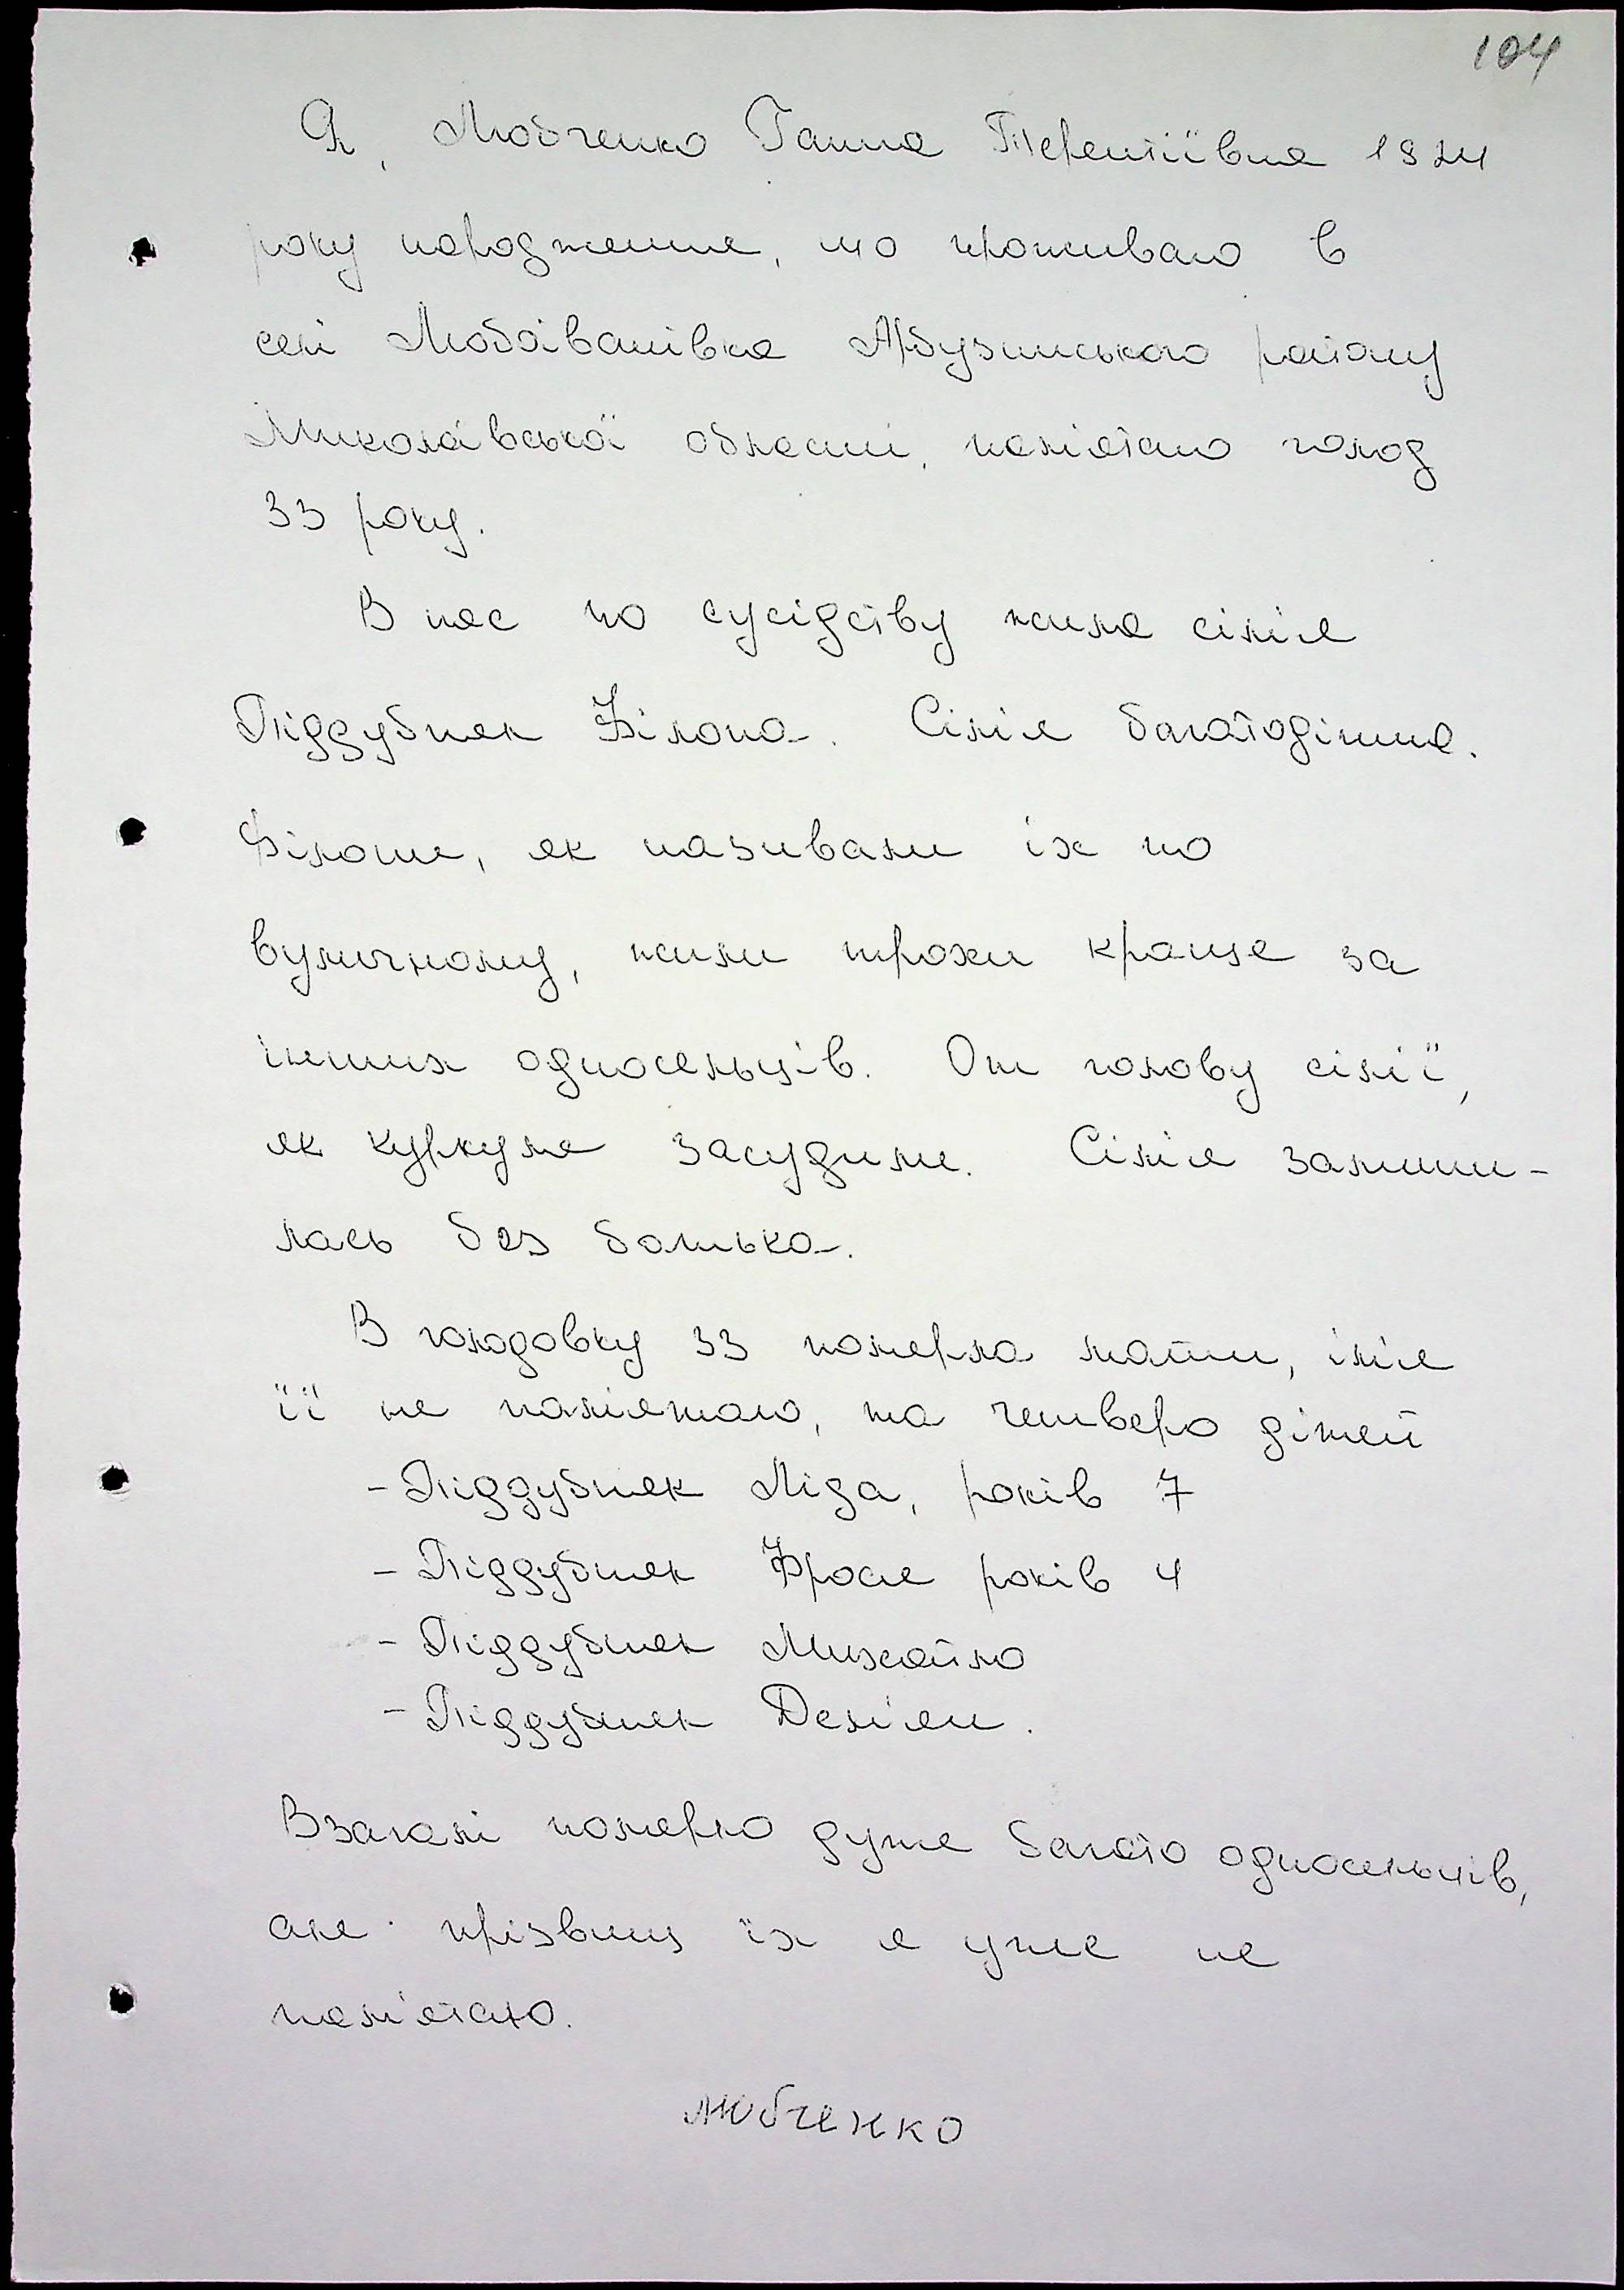 104
Я, Любченко Ганна Терентіївна 1924
року народження, що проживаю в
селі Любоіванівка Арбузинського району
Миколаівської області, памʼятаю голод
33 року.
В нас по сусідству жила сімʼя
Піддубняк Філона. Сімʼя багатодітна.
Філони, як називали іх по
вуличному, жили трохи краще за
інших односельців. От голову сімʼї,
як куркуля засудили. Сімʼя залиши-
лась без батька.
В голодовку 33 померла мати, імʼя
її не памʼятаю, та четверо дітей
- Піддубняк Ліда, років 7
- Піддубняк Фрося років 4
- Піддубняк Михайло
- Піддубняк Демʼян.
Взагалі померло дуже багато односельчів,
але прізвищ їх я уже не
памʼятаю.
Любченко